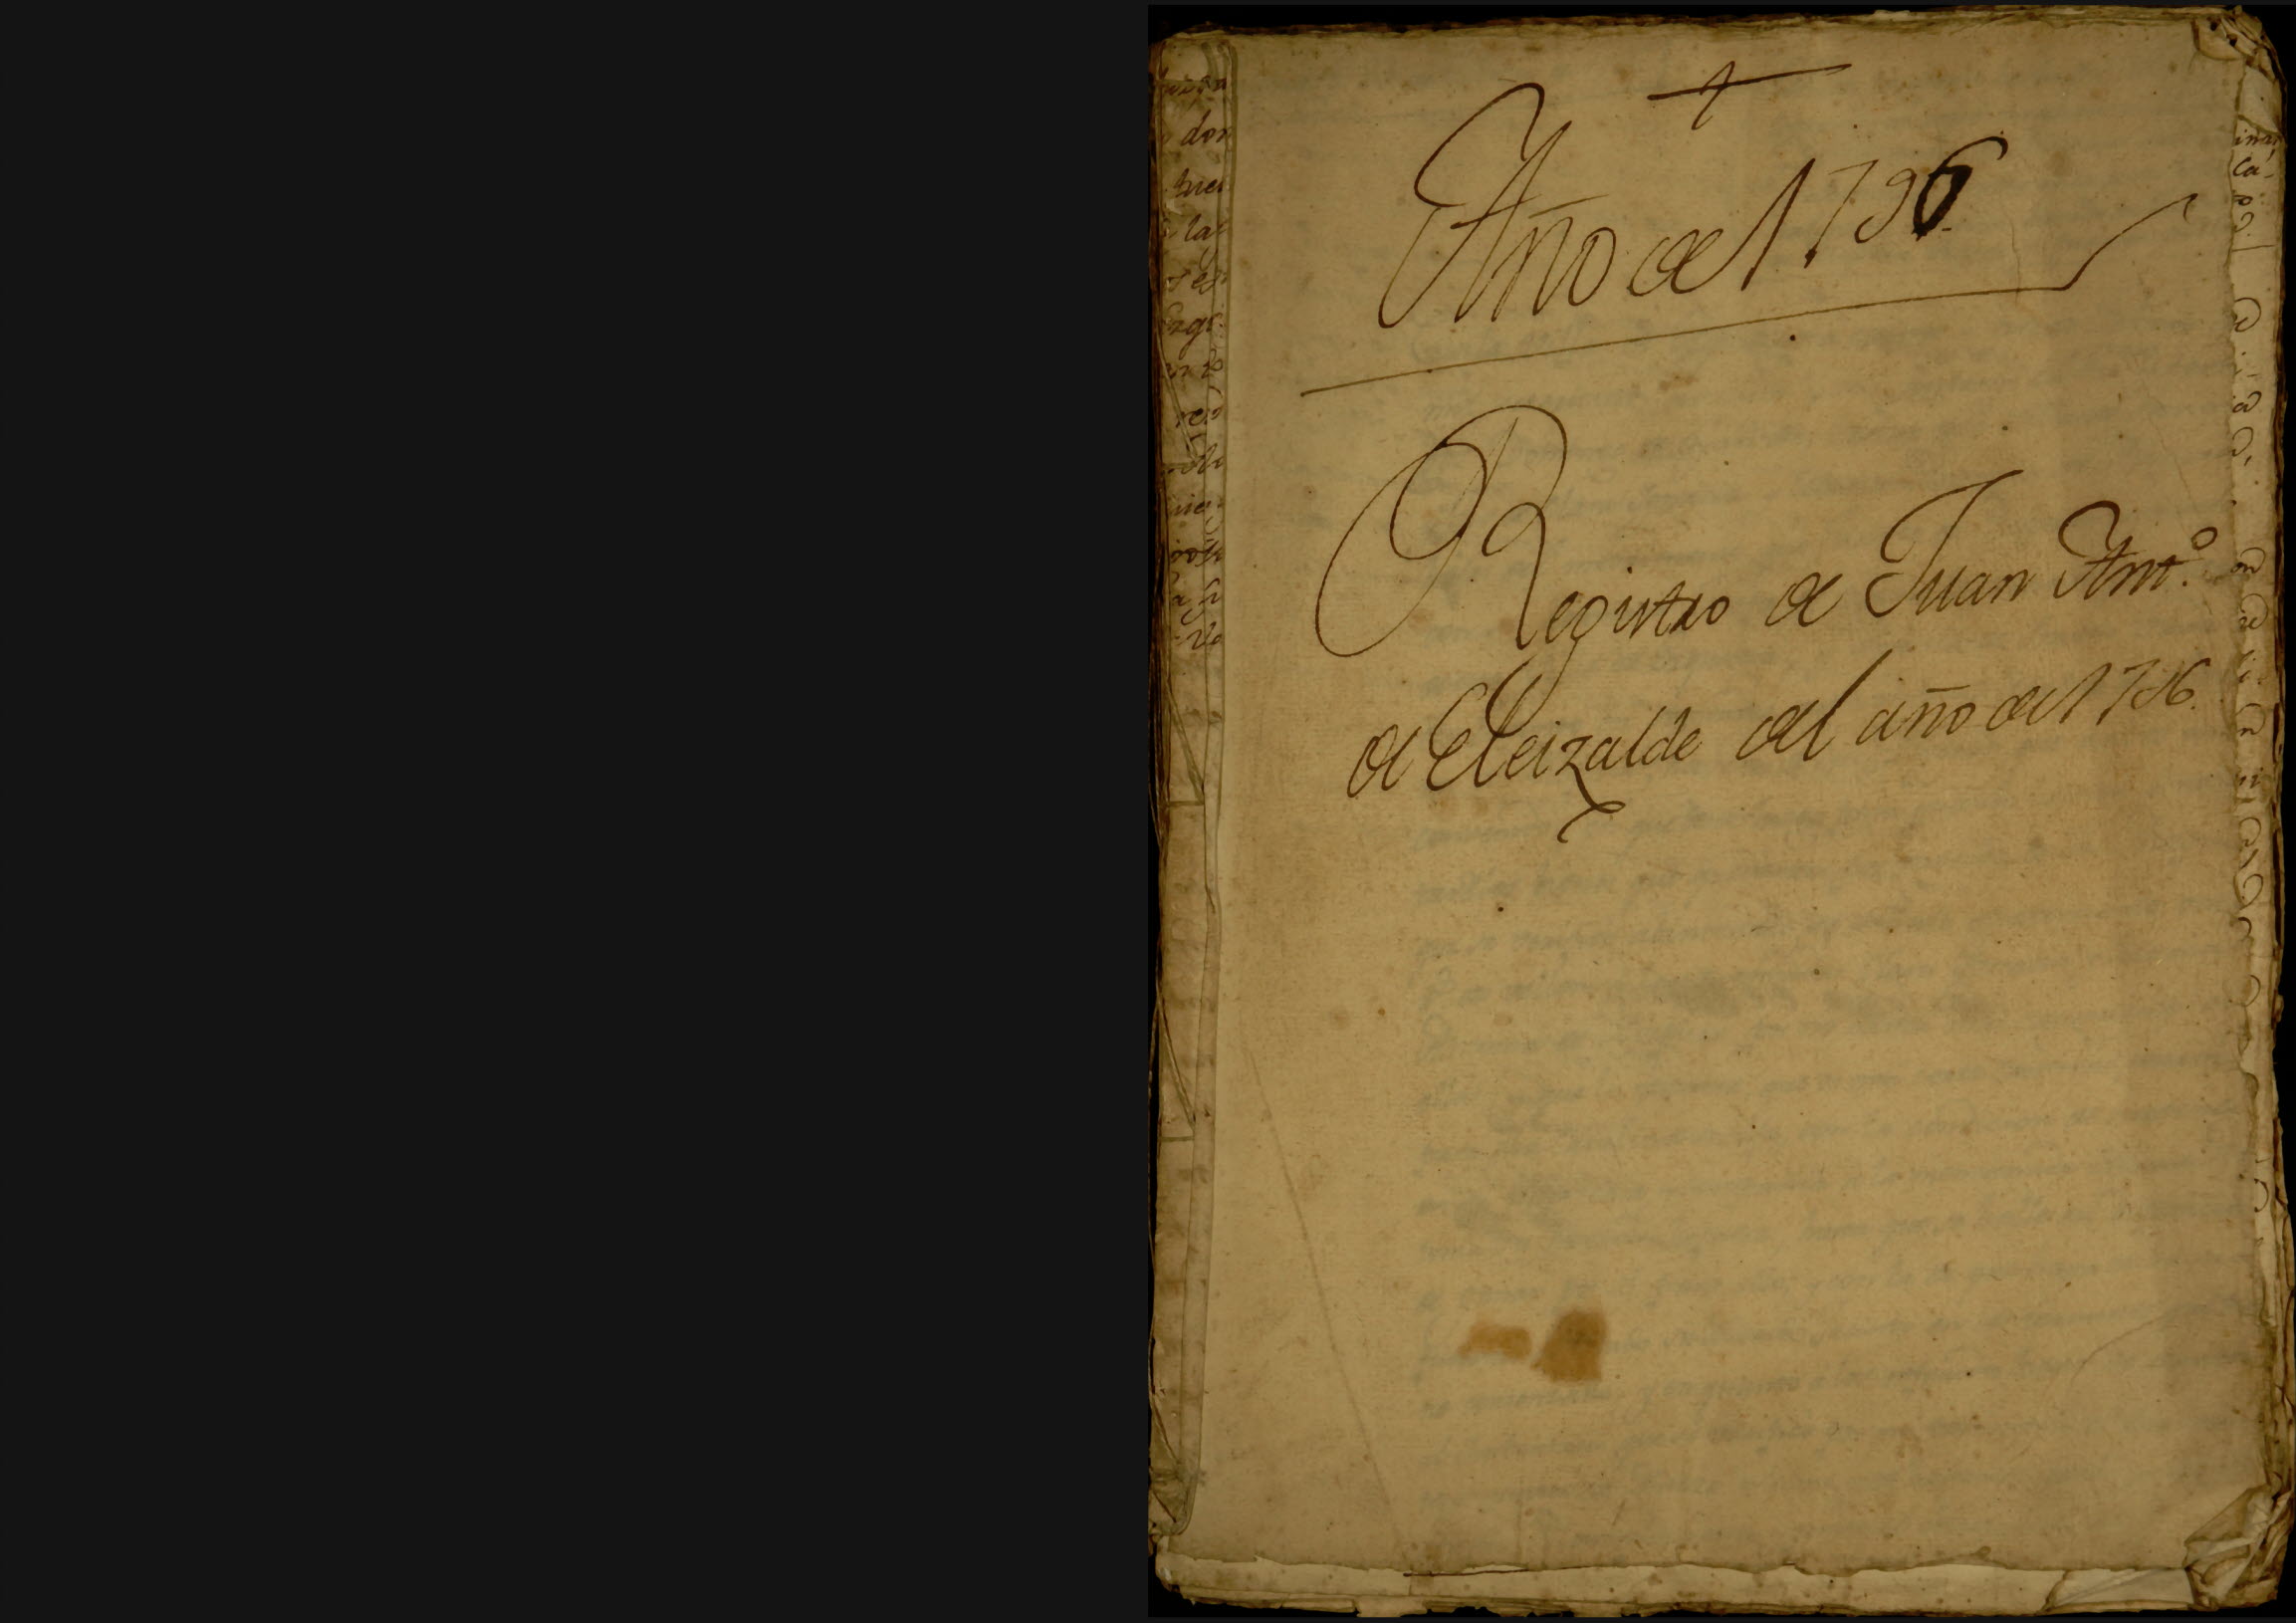 +
Año de 1796.
Registro de Juan Ant.º
de Eleizalde del año de 1796.